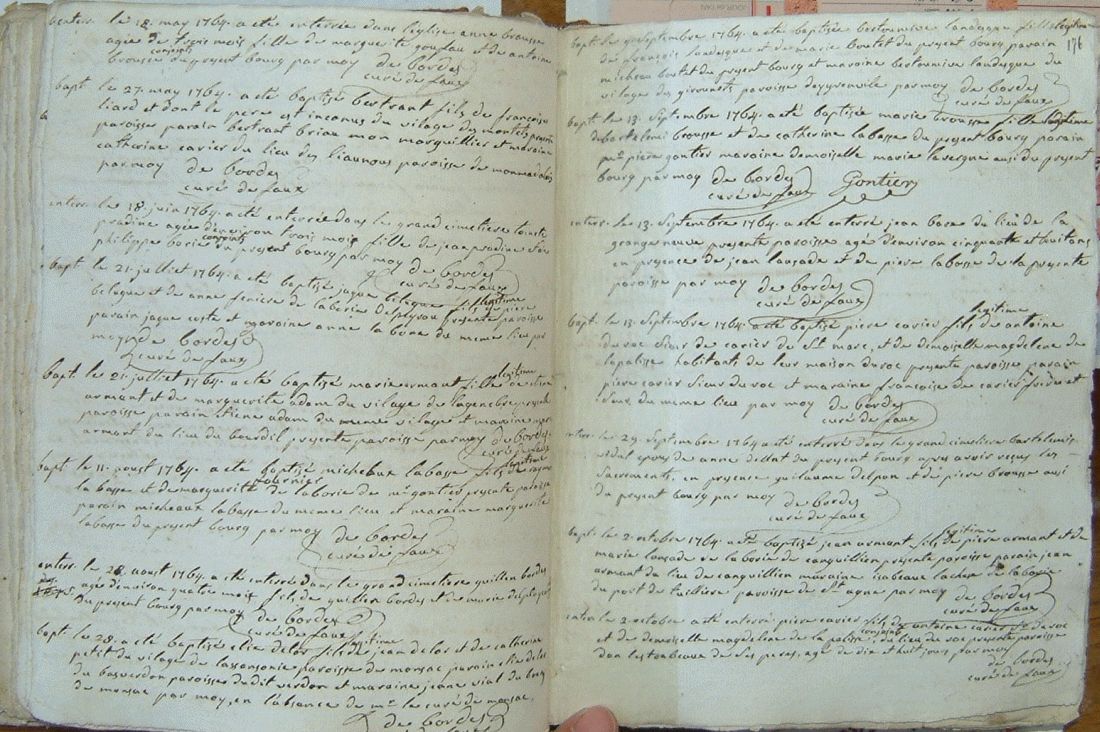 enterr. le 18. may 1764. a eté enterrée dans l'eglise anne brousse
agée de trois mois fille de marguerite et de antoine
conjoints
brousse du present bourg par moy de bordes
curé de faux
bapt. le 27. may 1764. a eté baptisé bertrant fils de françoise
liard et dont le pere est inconus du village des
paroisse parain bertrant brian mon marguillier et maraine
catherine cavier du lieu des liaunous paroisse de
par moy de bordes
curé de faux
enterr. le 18. juin 1764. a eté enterrée dans le grand cimetiere
pradine agée denviron trois mois fille de jean pradine et de
conjoints
philippe borie du present bourg par moy de bordes
curé de faux
bapt. le 21. juillet 1764. a eté baptisé jaque belegue fils de piere
legitime
belegue et de anne de laborie presente paroisse
parain jaque coste et maraine anne la du meme lieu par
moy de bordes
curé de faux
bapt. le 21. juillet 1764. a eté baptisé marie armant fille de
legitime
armant et de marguerite adam du vilage de presente
paroisse parain adam du meme vilage et maraine
armant du lieu du bourdil presente paroisse par moy de bordes
curé de faux
bapt. le 11. aoust 1764. a eté baptisé micheaux labasse fils de
legitime
fournier
labasse et de marguerite de laborie de mr gontier presente paroisse
parain micheaux labasse du meme lieu et maraine marguerite
labasse du present bourg par moy de bordes
curé de faux
enterr. le 28. aoust 1764. a eté enterré dans le grand cimetiere guillen bordes
agé denviron quatre mois fils de guillen bordes et de marie
du present bourg par moy de bordes
curé de faux
bapt. le 28. a eté baptisé elie delor fils de jean delor et de catherine
legitime
petit du vilage de paroisse de monsac parain elie delor
du bas verdon paroisse dudit verdon et maraine jeane vial du bourg
de monsac par moy, en labsance de mr le curé de monsac,
de bordes
curé de faux
176
bapt. le 9. Septembre 1764. a eté baptisée bertoumive landesque fille legitime
de françois landesque et de marie boutet du present bourg parain
micheau boutet du present bourg et maraine bertoumive landesque du
vilage des paroisse par moy de bordes
curé de faux
bapt. le 13. Septembre 1764. a eté baptisée marie brousse fille legitime
de bartelemi brousse et de catherine labasse du present bourg parain
mr piere gontier maraine demoiselle marie lavergne aussi du present
bourg par moy de bordes
curé de faux
Gontier
enterr. le 13. Septembre 1764. a eté enterré jean du lieu de la
grange neuve presente paroisse agé denviron cinquante et huit ans
en presence de jean lansade et de piere labasse de la presente
paroisse par moy de bordes
curé de faux
bapt. le 13. Septembre 1764. a eté baptisé piere cavier fils de antoine
legitime
du roc Sieur de cavier de St marc, et de demoiselle magdeleine de
lapalisse habitants de leur maison du roc presente paroisse parain
piere cavier Sieur du roc et maraine françoise de cavier frere et
Seur du meme lieu par moy de bordes
curé de faux
enterr. le 29. Septembre 1764. a eté enterré dans le grand cimetiere bartelemi
vidal epoux de anne du present bourg apres avoir reçus les
Sacrements, en presence guilaume delpon et de piere brousse aussi
du present bourg par moy de bordes
curé de faux
bapt. le 2. octobre 1764. a eté baptisé jean armant fils de piere armant et de
legitime
marie lansade de laborie de canguillien presente paroisse parain jean
armant du lieu de canguillien maraine isabeaux de laborie
du port de paroisse de St agne par moy de bordes
curé de faux
enterr. le 2. octobre a eté enterré piere cavier fils de antoine cavier Sr du roc
et de demoiselle magdeleine de la palisse conjoints du lieu de roc presente paroisse
dans les tombeaux de Ses peres, agé de dix et huit jours par moy
de bordes
curé de faux